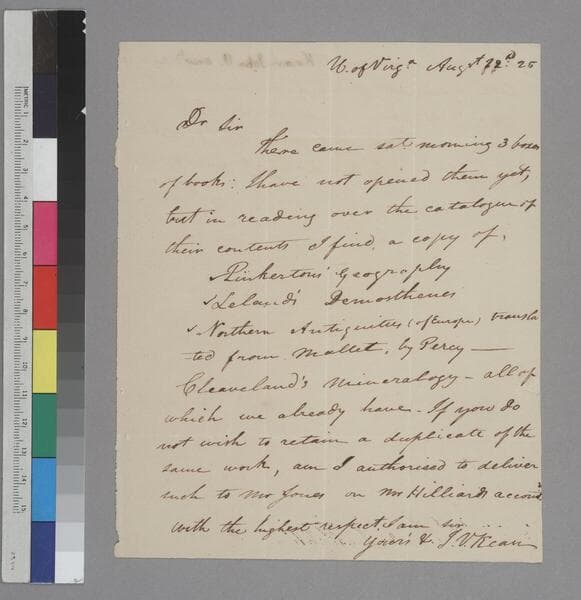 U. of Virgª Augst 22d. 25
Dr Sir
There came sat. morning 3 boxes
of books: I have not opened them yet,
but in reading over the catalogue of
their contents I find, a copy of,
Pinkerton's Geography
✓Leland's Demosthenes
✓Northern Antiquities (of Europe) transla
ted from Mallet, by Percy —
Cleaveland's Mineralogy – all of
which we already have – If you do
not wish to retain a duplicate of the
same work, am I authorised to deliver
such to Mr Jones on Mr Hilliards account
with the highest respect, I am sir
Your's & J. V. Kean